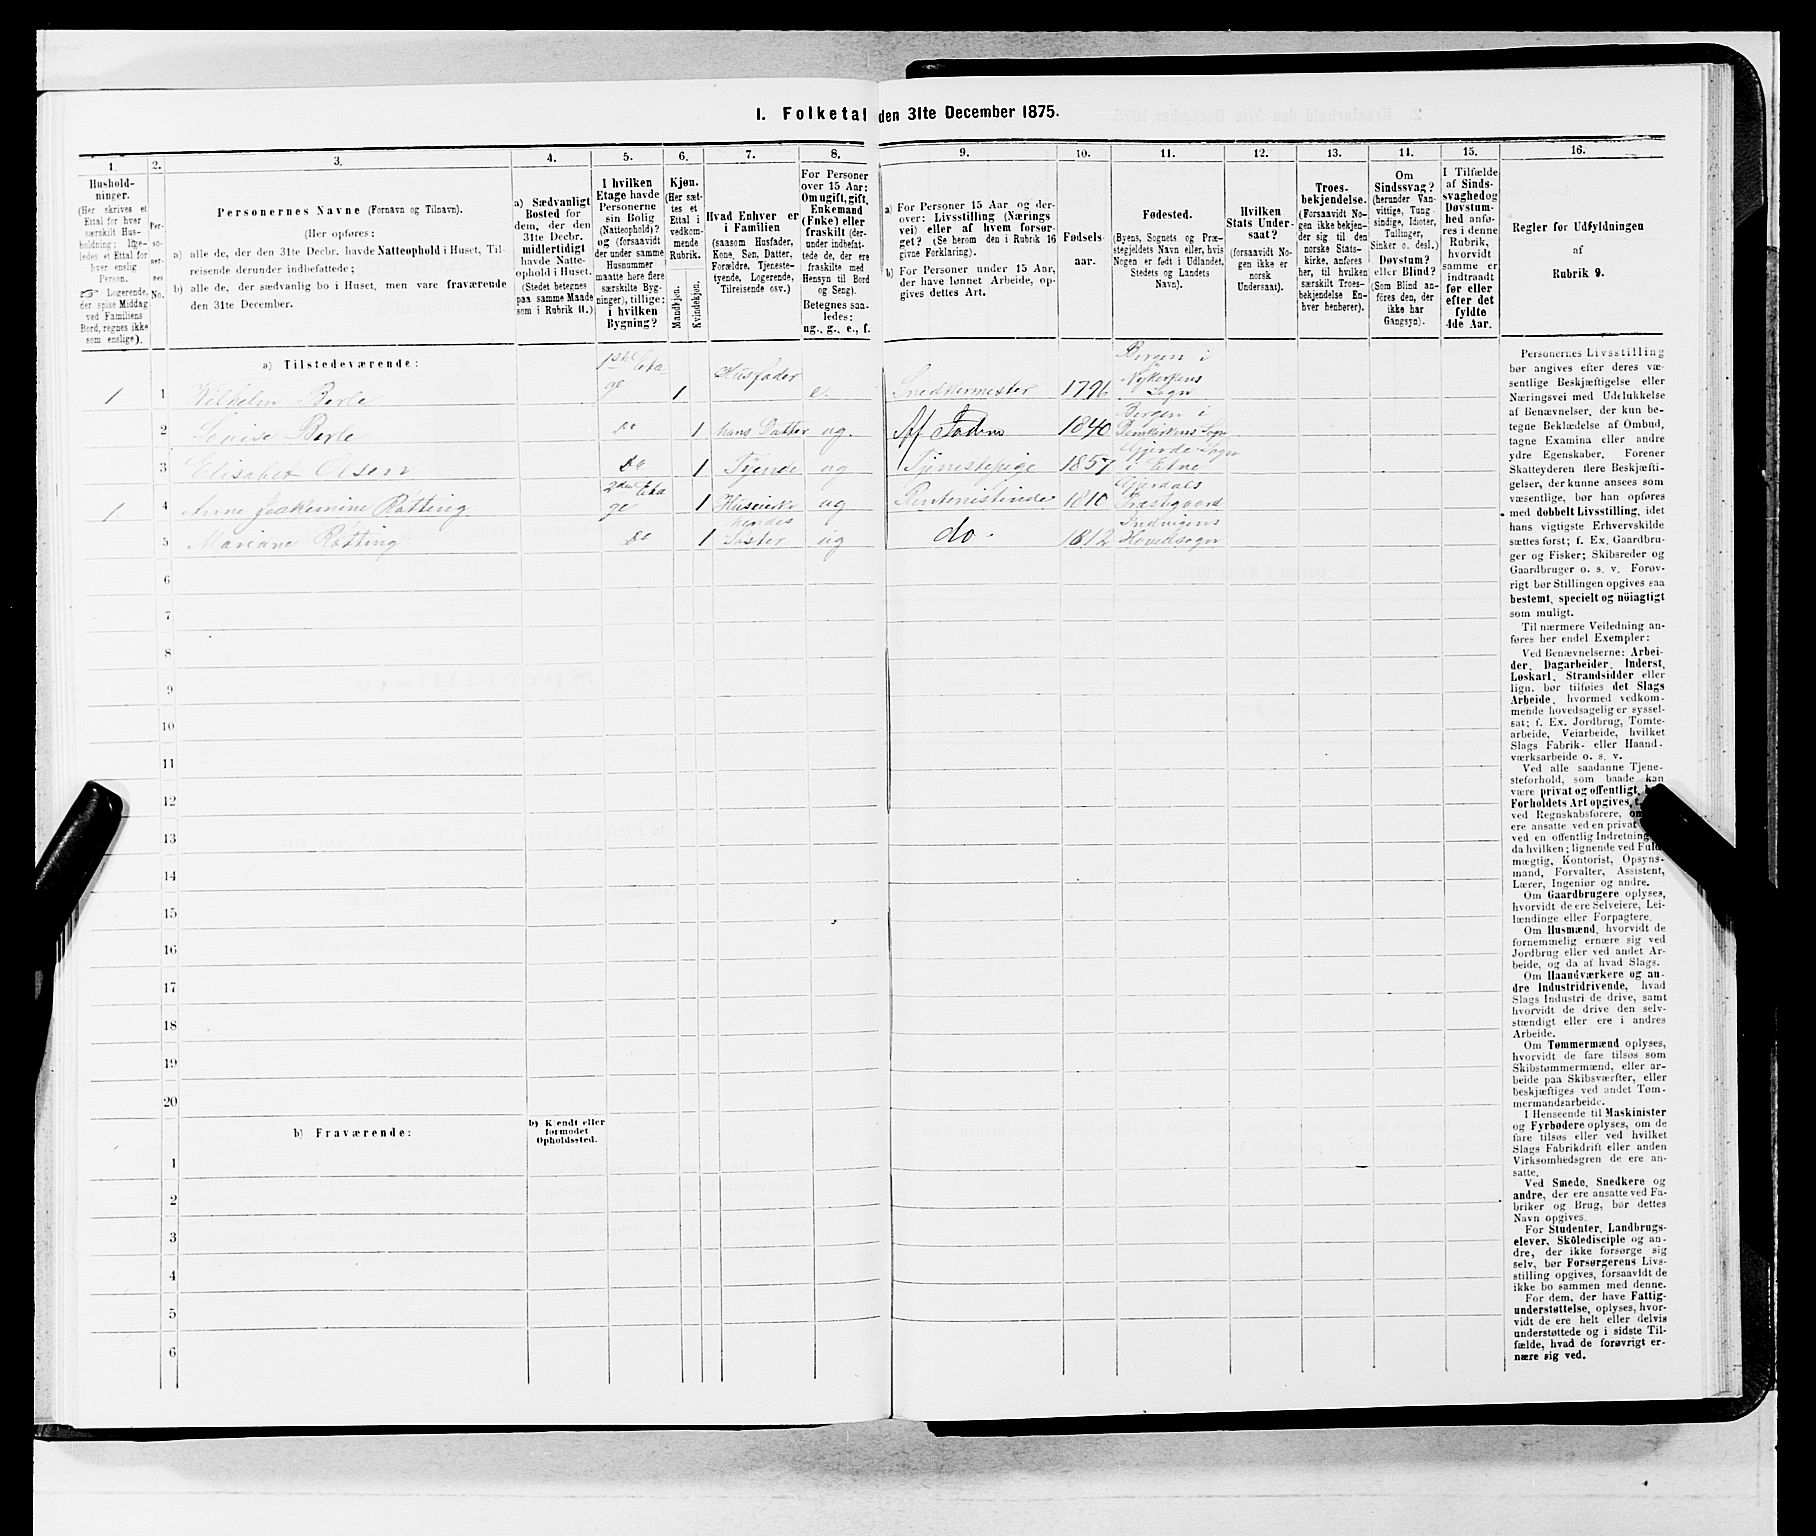 I. Folketal den 31te December 1875.
1. 2. 3. 4. 5. 6. 7. 8. 9. 10. 11. 12. 13. 14. 15. 16.
Hushold-
ninger.
(Her skrives et
Ettal for hver
særskilt Hus-
holdning; lige-
ledes et Ettal for
hver enslig
Person.
☞ Logerende,
der spise Middag
ved Familiens
Bord, regnes ikke
som enslige).
Per-
so-
ner-
nes
No.
Personernes Navne (Fornavn og Tilnavn).
(Her opføres:
a) alle de, der den 31te Decbr. havde Natteophold i Huset, Til-
reisende derunder indbefattede;
b) alle de, der sædvanlig bo i Huset, men vare fraværende
den 31te December.
a) Sædvanligt
Bosted for
dem, der den
31te Decbr.
midlertidigt
havde Natte-
ophold i Huset.
(Stedet betegnes
paa samme Maade
som i Rubrik 11.)
I hvilken
Etage havde
Personerne
sin Bolig
(Natteophold)?
og (forsaavidt
der under samme
Husnummer
maatte høre flere
særskilte Byg-
ninger), tillige:
i hvilken
Bygning?
Kjøn.
(Her sæt-
tes et
Ettal i
vedkom-
mende
Rubrik.
Mandkjøn.
Kvindekjøn.
Hvad Enhver er
i Familien
(saasom Husfader,
Kone, Søn, Datter,
Forældre, Tjeneste-
tyende, Logerende,
Tilreisende osv.)
For Personer
over 15 Aar:
Om ugift, gift,
Enkemand
(Enke) eller
fraskilt (der-
under indbefat-
tede de, der ere
fraskilte med
Hensyn til Bord
og Seng).
Betegnes saa-
ledes:
ug., g., e., f.
a) For Personer 15 Aar og der-
over: Livsstilling (Nærings
vei) eller af hvem forsør-
get? (Se herom den i Rubrik 16
givne Forklaring).
b) For Personer under 15 Aar,
der have lønnet Arbeide, op-
gives dettes Art.
Fødsels-
aar.
Fødested.
(Byens, Sognets og Præ-
stegjeldets Navn eller, hvis
Nogen er født i Udlandet,
Stedets og Landets
Navn).
Hvilken
Stats Under-
saat?
(forsaavidt No-
gen ikke er
norsk
Undersaat).
Troes-
bekjendelse.
(Forsaavidt No-
gen ikke bekjen-
der sig til den
norske Stats-
kirke, anføres
her, til hvilken
særskilt Troes-
bekjendelse En-
hver henhører).
Om
Sindssvag?
(herunder Van-
vittige, Tung-
sindige, Idioter,
Tullinger,
Sinker o. desl.)
Døvstum?
eller Blind?
(Som Blind an-
føres den, der
ikke har
Gangsyn).
I Tilfælde
af Sinds-
svaghed og
Døvstum-
hed anfø-
res i denne
Rubrik,
hvorvidt
samme er
indtraadt
før eller
efter det
fyldte
4de Aar.
Regler for Udfyldningen
af
Rubrik 9.
a) Tilstedeværende:
1 1 Wilhelm Berle 1ste Etage 1 Husfader e. Snedkermester 1796 Bergen i Nykirkens Sogn
2 Louise Berle do 1 hans Datter ug. Af Faderen 1840 Bergen i Domkirkens Sogn
3 Elisabet Olsen do 1 Tyende ug Tjenestepige 1857 Gjerde Sogn i Etne
1 4 Anne Joakimine Røtting 2den Etage 1 ug Rentenistinde 1810 Præstgaard
5 Mariane Røtting do 1 hendes Søster ug do. 1812 Indvigens Hovedsogn
6
7
8
9
10
11
12
13
14
15
16
17
18
19
20
b) Fraværende:
b) Kjendt eller
formodet
Opholdssted.
1
2
3
4
5
6
Personernes Livsstilling
bør angives efter deres væ-
sentlige Beskjæftigelse eller
Næringsvei med Udelukkelse
af Benævnelser, der kun be-
tegne Beklædelse af Ombud,
tagne Examina eller andre
ydre Egenskaber. Forener
Skatteyderen flere Beskjæfti-
gelser, der kunne ansees som
væsentlige, bør han opføres
med dobbelt Livsstilling, idet
hans vigtigste Erhvervskilde
sættes først; f. Ex. Gaardbru-
ger og Fisker; Skibsreder og
Gaardbruger o. s. v. Forøv-
rigt bør Stillingen opgives saa
bestemt, specielt og nöiagtigt
som muligt.
Til nærmere Veiledning an-
føres her endel Exempler:
Ved Benævnelserne: Arbei-
der, Dagarbeider, Inderst,
Løskarl, Strandsidder eller
lign. bør tilføies det Slags
Arbeide, hvormed vedkom-
mende hovedsagelig er syssel-
sat; f. Ex. Jordbrug, Tomte-
arbeide, Veiarbeide, hvilket
Slags Fabrik- eller Haand-
værksarbeide o. s. v.
Ved alle saadanne Tjene-
steforhold, som baade kan
være privat og offentligt,
Forholdets Art opgives,
ved Regnskabsførere,
ere ansatte ved en privat
ved en offentlig Indretning
da hvilken; lignende ved Fuld-
mægtig, Kontorist, Opsyns-
mand, Forvalter, Assistent,
Lærer, Ingeniør og andre.
Om Gaardbrugere oplyses,
hvorvidt de ere Selveiere, Lei-
lændinge eller Forpagtere.
Om Husmænd, hvorvidt de
fornemmelig ernære sig ved
Jordbrug eller ved andet Ar-
beide, og da af hvad Slags.
Om Haandværkere og an-
dre Industridrivende, hvad
Slags Industri de drive, samt
hvorvidt de drive den selv-
stændigt eller ere i andres
Arbeide.
Om Tømmermænd oplyses,
hvorvidt de fare tilsøs som
Skibstømmermænd, eller ar-
beide paa Skibsværfter, eller
beskjæftiges ved andet Tøm-
mermandsarbeide.
I Henseende til Maskinister
og Fyrbødere oplyses, om de
fare tilsøs eller ved hvilket
Slags Fabrikdrift eller anden
Virksomhedsgren de ere an-
satte.
Ved Smede, Snedkere og
andre, der ere ansatte ved Fa-
briker og Brug, bør dettes
Navn opgives.
For Studenter, Landbrugs-
elever, Skôledisciple og an-
dre, der ikke forsørge sig
selv, bør Forsørgerens Livs-
stilling opgives, forsaavidt de
ikke bo sammen med denne.
For dem, der have Fattig-
understøttelse, oplyses, hvor-
vidt de ere helt eller delvis
understøttede og i sidste Til-
fælde, hvad de forøvrigt er-
nære sig ved.